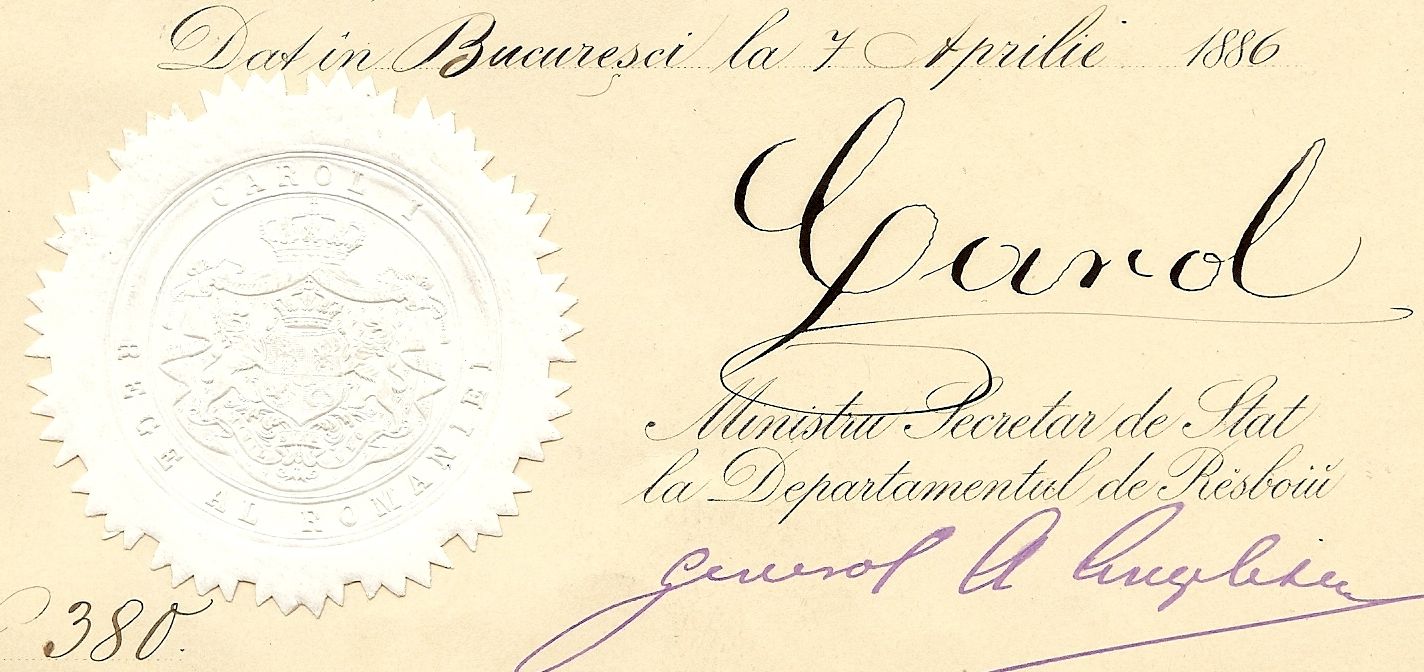 Dat în Bucureşci la 7 Aprilie 1886
CAROL I
REGE AL ROMANIEI
Carol
Ministru Secretar de Stat
la Departamentul de Rĕsboiŭ
General A Anghelescu
380.